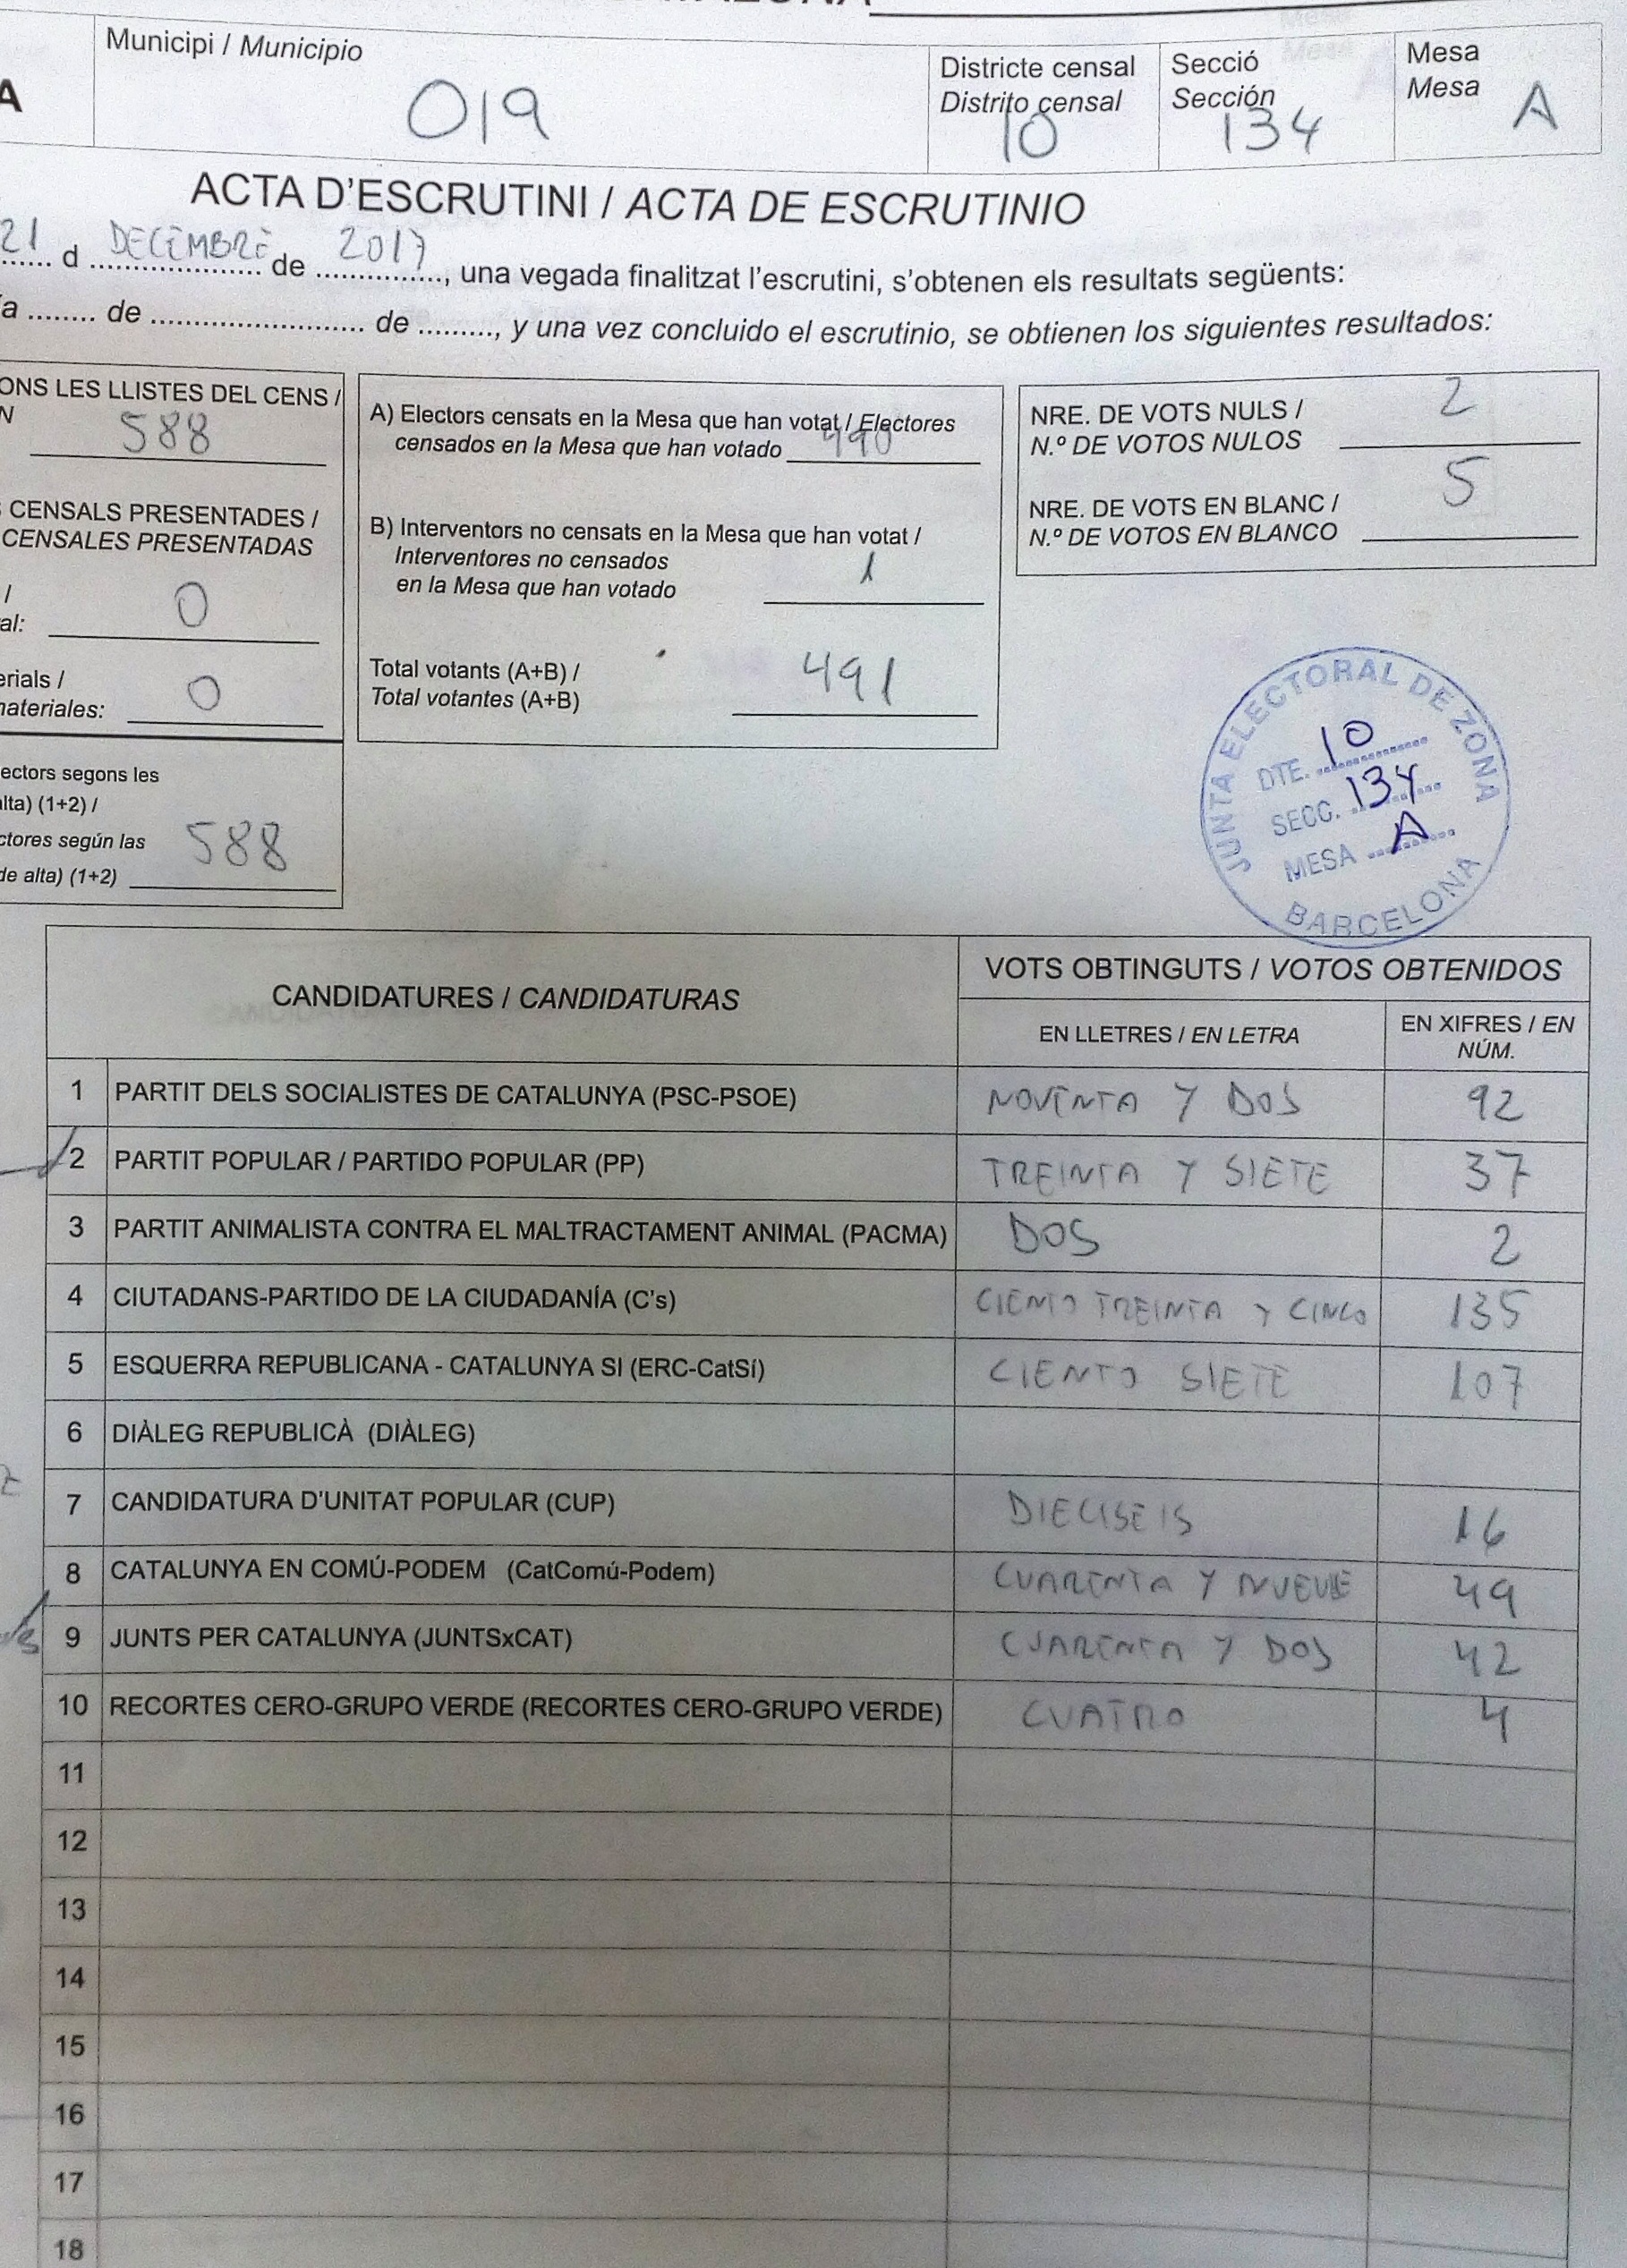 Municipi / Municipio
019
Districte censal
Distrito censal
10
Secció
Sección
134
Mesa
Mesa
A
A
ACTA D'ESCRUTINI / ACTA DE ESCRUTINIO
21 d DECEMBRE de 2017, una vegada finalitzat l'escrutini, s'obtenen els resultats següents:
a ........ de .......................... de ........., y una vez concluido el escrutinio, se obtienen los siguientes resultados:
ONS LES LLISTES DEL CENS /
N
588
CENSALS PRESENTADES /
CENSALES PRESENTADAS
/
al: 0
erials /
materiales: 0
ectors segons les
alta) (1+2) /
ctores según las
de alta) (1+2) 588
A) Electors censats en la Mesa que han votat / Electores
censados en la Mesa que han votado 490
B) Interventors no censats en la Mesa que han votat /
Interventores no censados
en la Mesa que han votado 1
Total votants (A+B) /
Total votantes (A+B) 491
NRE. DE VOTS NULS /
N.º DE VOTOS NULOS 2
NRE. DE VOTS EN BLANC /
N.º DE VOTOS EN BLANCO 5
JUNTA ELECTORAL DE ZONA
DTE. 10
SECC. 134
MESA A
BARCELONA
CANDIDATURES / CANDIDATURAS
VOTS OBTINGUTS / VOTOS OBTENIDOS
EN LLETRES / EN LETRA
EN XIFRES / EN
NÚM.
1 PARTIT DELS SOCIALISTES DE CATALUNYA (PSC-PSOE) NOVENTA Y DOS 92
2 PARTIT POPULAR / PARTIDO POPULAR (PP) TREINTA Y SIETE 37
3 PARTIT ANIMALISTA CONTRA EL MALTRACTAMENT ANIMAL (PACMA) DOS 2
4 CIUTADANS-PARTIDO DE LA CIUDADANÍA (C's) CIENTO TREINTA Y CINCO 135
5 ESQUERRA REPUBLICANA - CATALUNYA SI (ERC-CatSí) CIENTO SIETE 107
6 DIÀLEG REPUBLICÀ (DIÀLEG)
7 CANDIDATURA D'UNITAT POPULAR (CUP) DIECISEIS 16
8 CATALUNYA EN COMÚ-PODEM (CatComú-Podem) CUARENTA Y NUEVE 49
9 JUNTS PER CATALUNYA (JUNTSxCAT) CUARENTA Y DOS 42
10 RECORTES CERO-GRUPO VERDE (RECORTES CERO-GRUPO VERDE) CUATRO 4
11
12
13
14
15
16
17
18